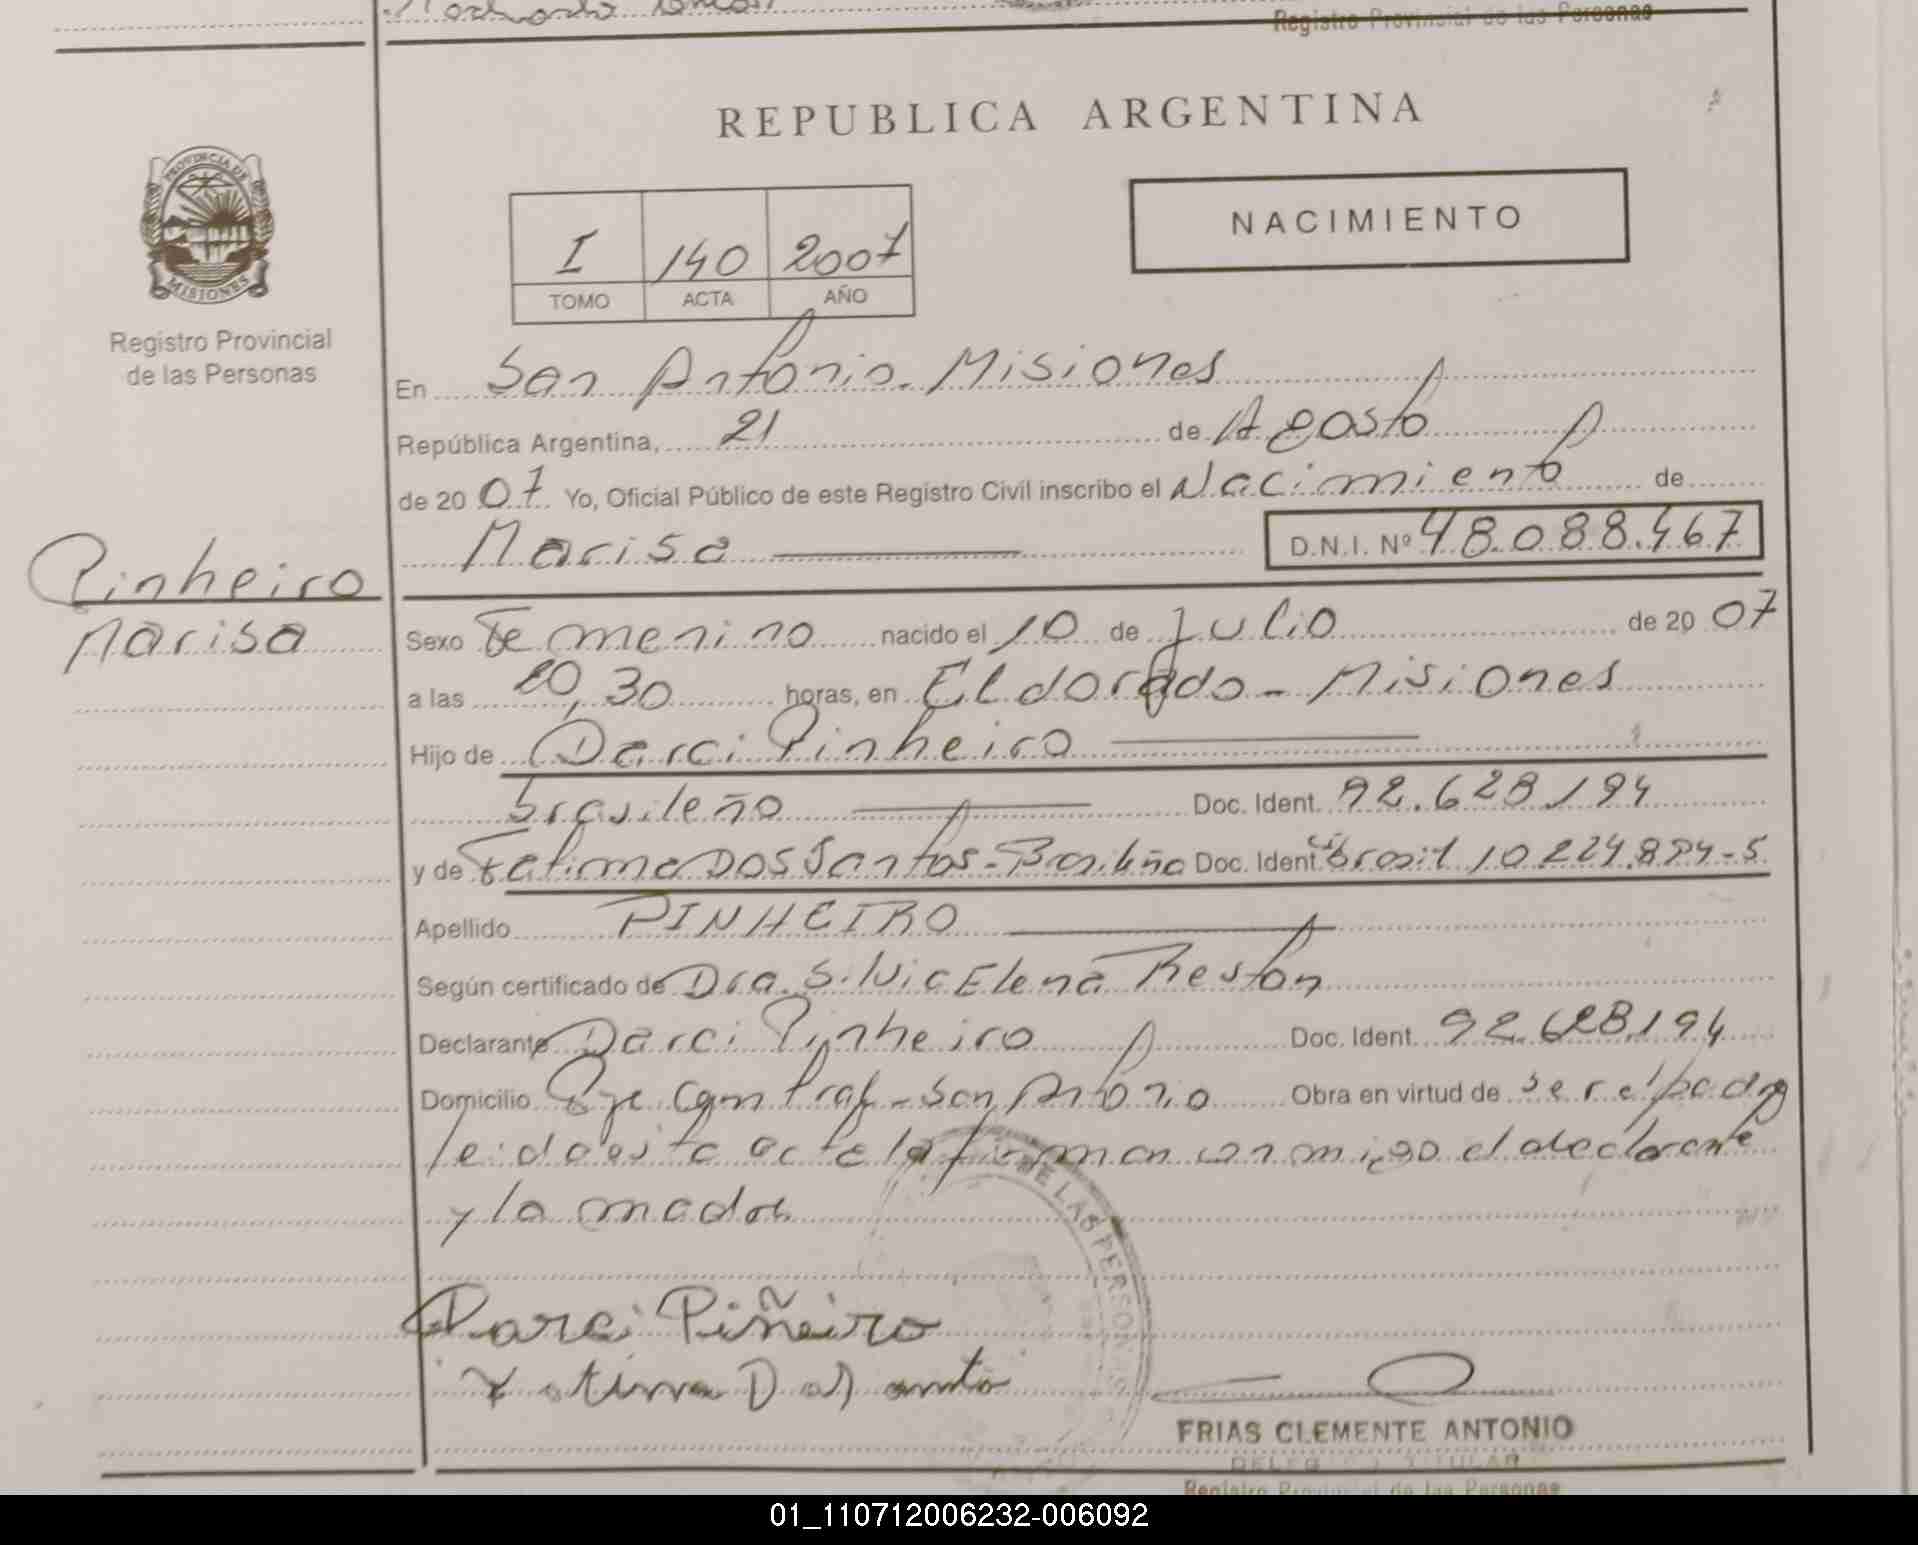 Registro Provincial de las Personas
REPUBLICA ARGENTINA
PROVINCIA DE
MISIONES
Registro Provincial
de las Personas
I 140 2007
TOMO ACTA AÑO
NACIMIENTO
En San Antonio. Misiones
República Argentina, 21 de Agosto
de 2007 Yo, Oficial Público de este Registro Civil inscribo el Nacimiento de
Marisa D.N.I. Nº 48.088.467
Pinheiro
Marisa
Sexo Femenino nacido el 10 de Julio de 2007
a las 20,30 horas, en Eldorado - Misiones
Hijo de Darci Pinheiro
brasileño Doc. Ident. 92.628.194
y de Fatima Dos Santos - Brasileña Doc. Ident. Brasil
Apellido PINHEIRO
Según certificado de Dra. Silvia Elena
Declarante Darci Pinheiro Doc. Ident. 92.628.194
Domicilio San Antonio Obra en virtud de ser el padre
leida esta acta la firman conmigo el declarante
y la madre
DE LAS PERSONAS
Darci Piñeiro
Fatima Dos
FRIAS CLEMENTE ANTONIO
Registro Provincial de las Personas
01_110712006232-006092